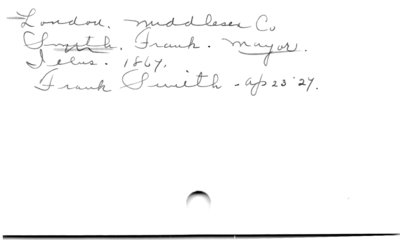 London. Middlesex Co
Smith. Frank. Mayor.
Illus. 1867.
Frank Smith - Ap 23 '27.